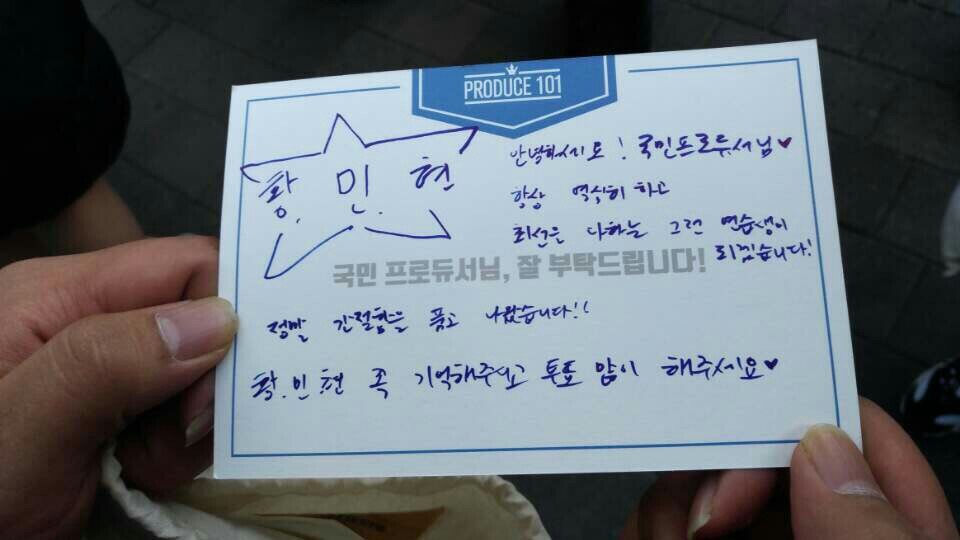 PRODUCE 101
황. 민. 현
안녕하세요! 국민프로듀서님♥
항상 열심히 하고
최선을 다하는 그런 연습생이
되겠습니다!
국민 프로듀서님, 잘 부탁드립니다!
정말 간절함을 품고 나왔습니다!!
황.민.현 꼭 기억해주시고 투표 많이 해주세요♥